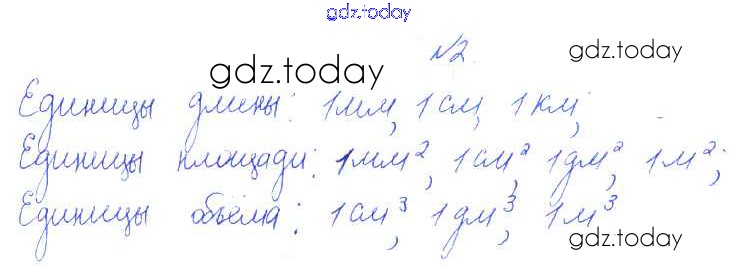 gdz.today
№2 gdz.today
gdz.today
Единицы длины: 1мм, 1см, 1км;
Единицы площади: 1мм², 1см², 1дм², 1м²;
Единицы объёма: 1см³, 1дм³, 1м³
gdz.today